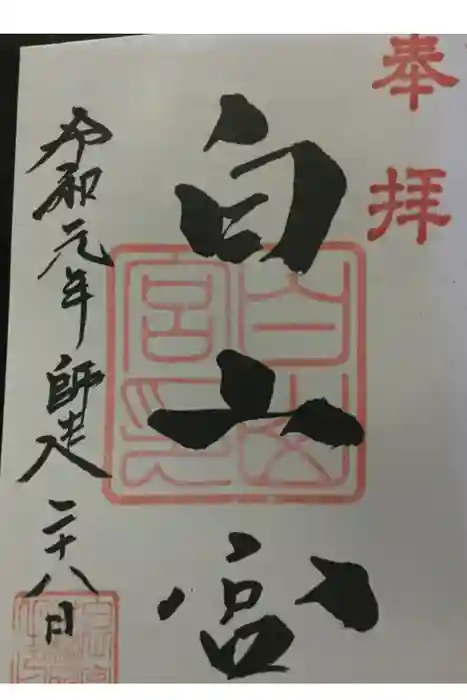 奉拝
白山宮
令和元年師走二十八日
白山宮印